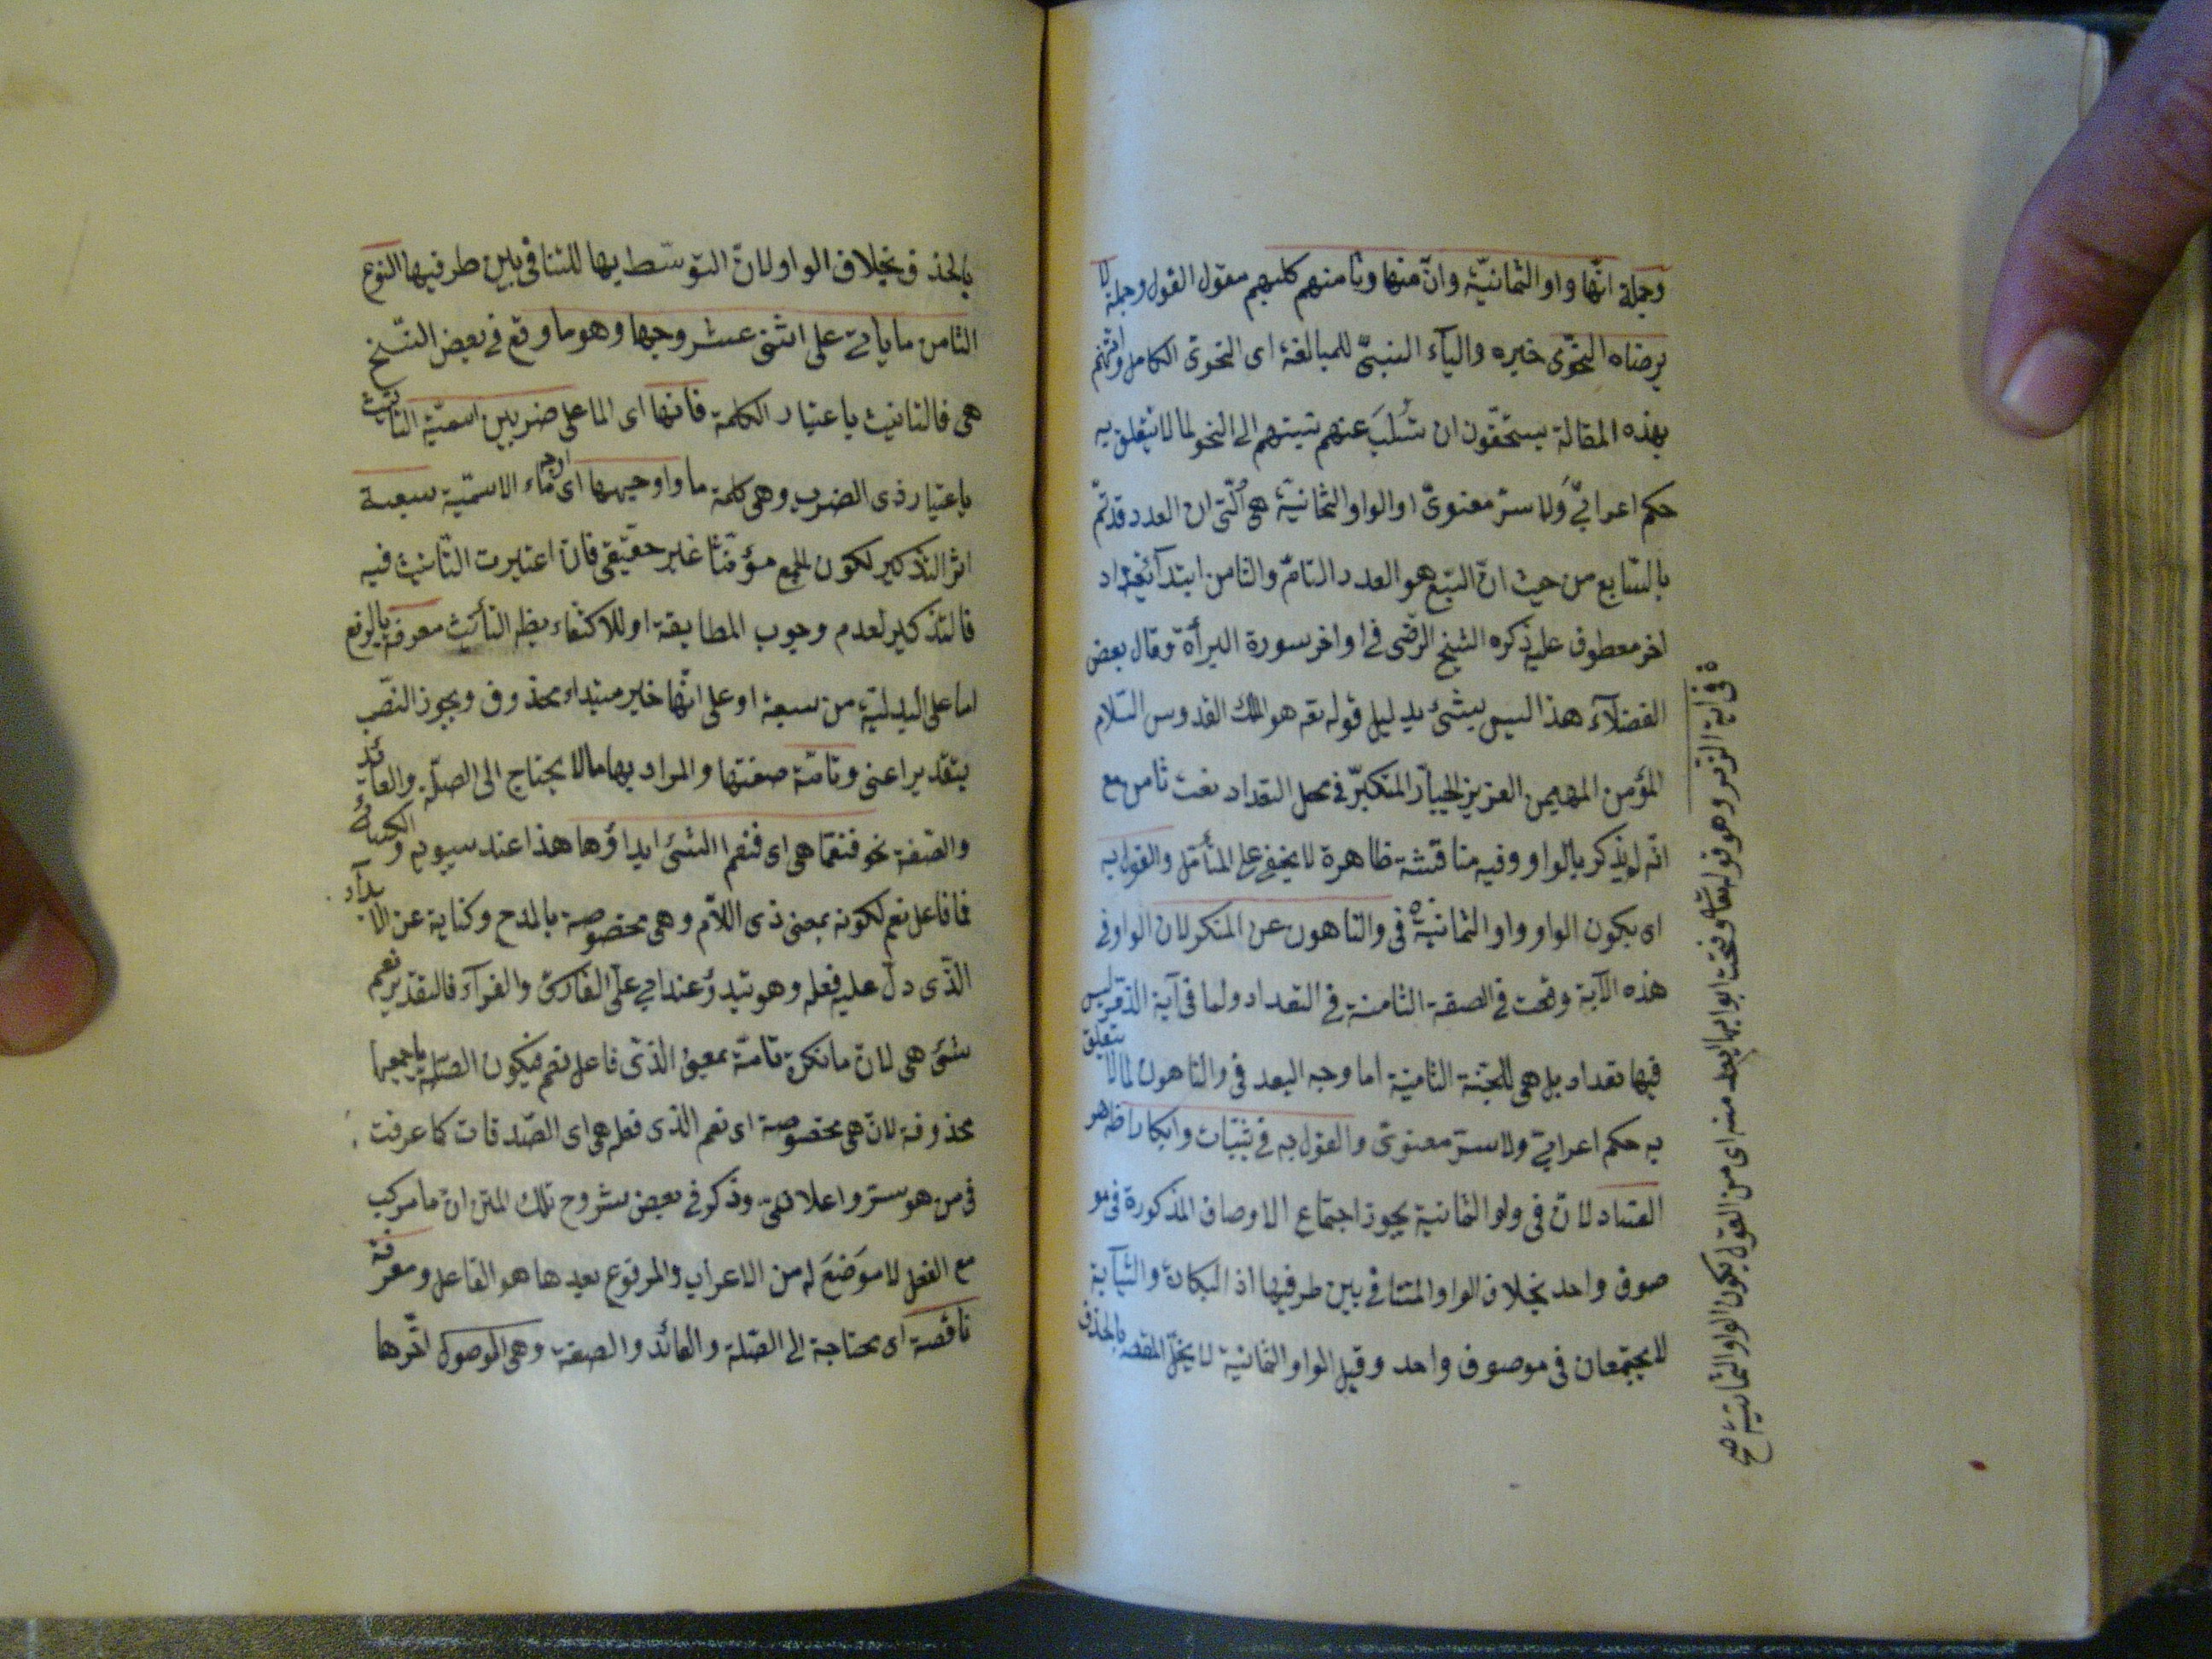 وجملة انّها واو الثمانيّة وانّ منها وثامنهم كلبهم مقول القول وجملة لا
يرضاه النحوّى خبره والياء النسبىّ للمبالغة اى النحوىّ الكامل
بهذه المقالة يستحقّون ان تسلبَ عنهم نسبتهم الى النحو لما لا يتعلق به
حكم اعرابىّ ولا سرّ معنوىّ او الواو الثمانيّة هى الّتى ان العدد قد تمّ
بالسّابع من حيث انّ السّبع هو العدد التامّ والثامن ابتداء تعداد
اخر معطوف عليه ذكره الشيخ الرّضى فى اواخر سورة البرأة وقال بعض
الفضلآء هذا ليس بشئ بدليل قوله تعه هو الملك القدوس السّلام
المؤمن المهيمن العزيز الجبّار المتكبّر فى محل التعداد نعت ثامن مع
انّه لم يذكر بالواو وفيه مناقشة ظاهرة لا يخفى على المتأمّل والقول به
اى بكون الواو واو الثمانيّة فى والنّاهون عن المنكر لان الواو فى
هذه الآية وقعت فى الصفة الثامنة فى التعداد ولما فى آية الزّمر ليس
فيها تعداد بل هى للجنّة الثامنية اما وجه البعد فى والناهون لما لا يتعلّق
به حكم اعرابىّ ولا سرّ معنوىّ والقول به فى ثيّبات وابكارا ظاهر
الفساد لانّ فى واو الثمانية يجوز اجتماع الاوصاف المذكورة فى مو
صوف واحد بخلاف الواو المتنافى بين طرفيها اذ البكارة والثيابة
لا يجتمعان فى موصوف واحد وقيل الواو الثمانية لا يخلّ المقصه بالحذف
فى آية الزّمر وهو قوله تعالى وفتحت ابوابها ابعد منه اى من القول بكون الواو الثمانيّة صح
بالحذف بخلاف الواو لانّ التوسّط بها للتنافى بين طرفيها النوع
الثامن ما يأتى على اثنى عشر وجها وهو ما وقع فى بعض النّسخ
هى فالتانيث باعتبار الكلمة فانها اى الما على ضربين اسميّة التأنيث
باعتبار ذى الضرب وهى كلمة ما واوجهها اى اوجه ماء الاسميّة سبعة
اثر التذكير لكون الجمع مؤنّثا غير حقيقى فان اعتبرت التّانيث فيه
فالتذكير لعدم وجوب المطابقة او للاكتفاء بظه التأنيث معرفة بالرفع
اما على البدليّة من سبعة او على انّها خبر مبتداء محذوف ويجوز النصّب
بتقدير اعنى وتامّة صفتها والمراد بها مالا يحتاج الى الصّلة والعائد
والصّفة نحو فنعمّا هى اى فنعم الشئ ابداؤها هذا عند سيبويه والكسائى
فما فاعل نعم لكونه بمعنى ذى اللّام وهى مخصوصة بالمدح وكناية عن الابدآء
الّذى دلّ عليه فعله وهو تبدوُ عند ابى على الفارسىّ والفرّآء فالتقدير نعم
شئ هى لان ما نكرة تامّة بمعنى الذى فاعل نعم فيكون الصّلة باجمعها
محذوفة لانّ هى مخصوصة اى نعم الذى فعله هى اى الصّدقات كما عرفت
فى من هو سرّ واعلان وذكر فى بعض شروح تلك المتن انّ ما مركب
مع الفعل لا موَضعَ له من الاعراب والمرفوع بعدها هو الفاعل ومعرفة
ناقصة اى محتاجة الى الصّلة والعائد والصفة وهى الموصول اخّرها